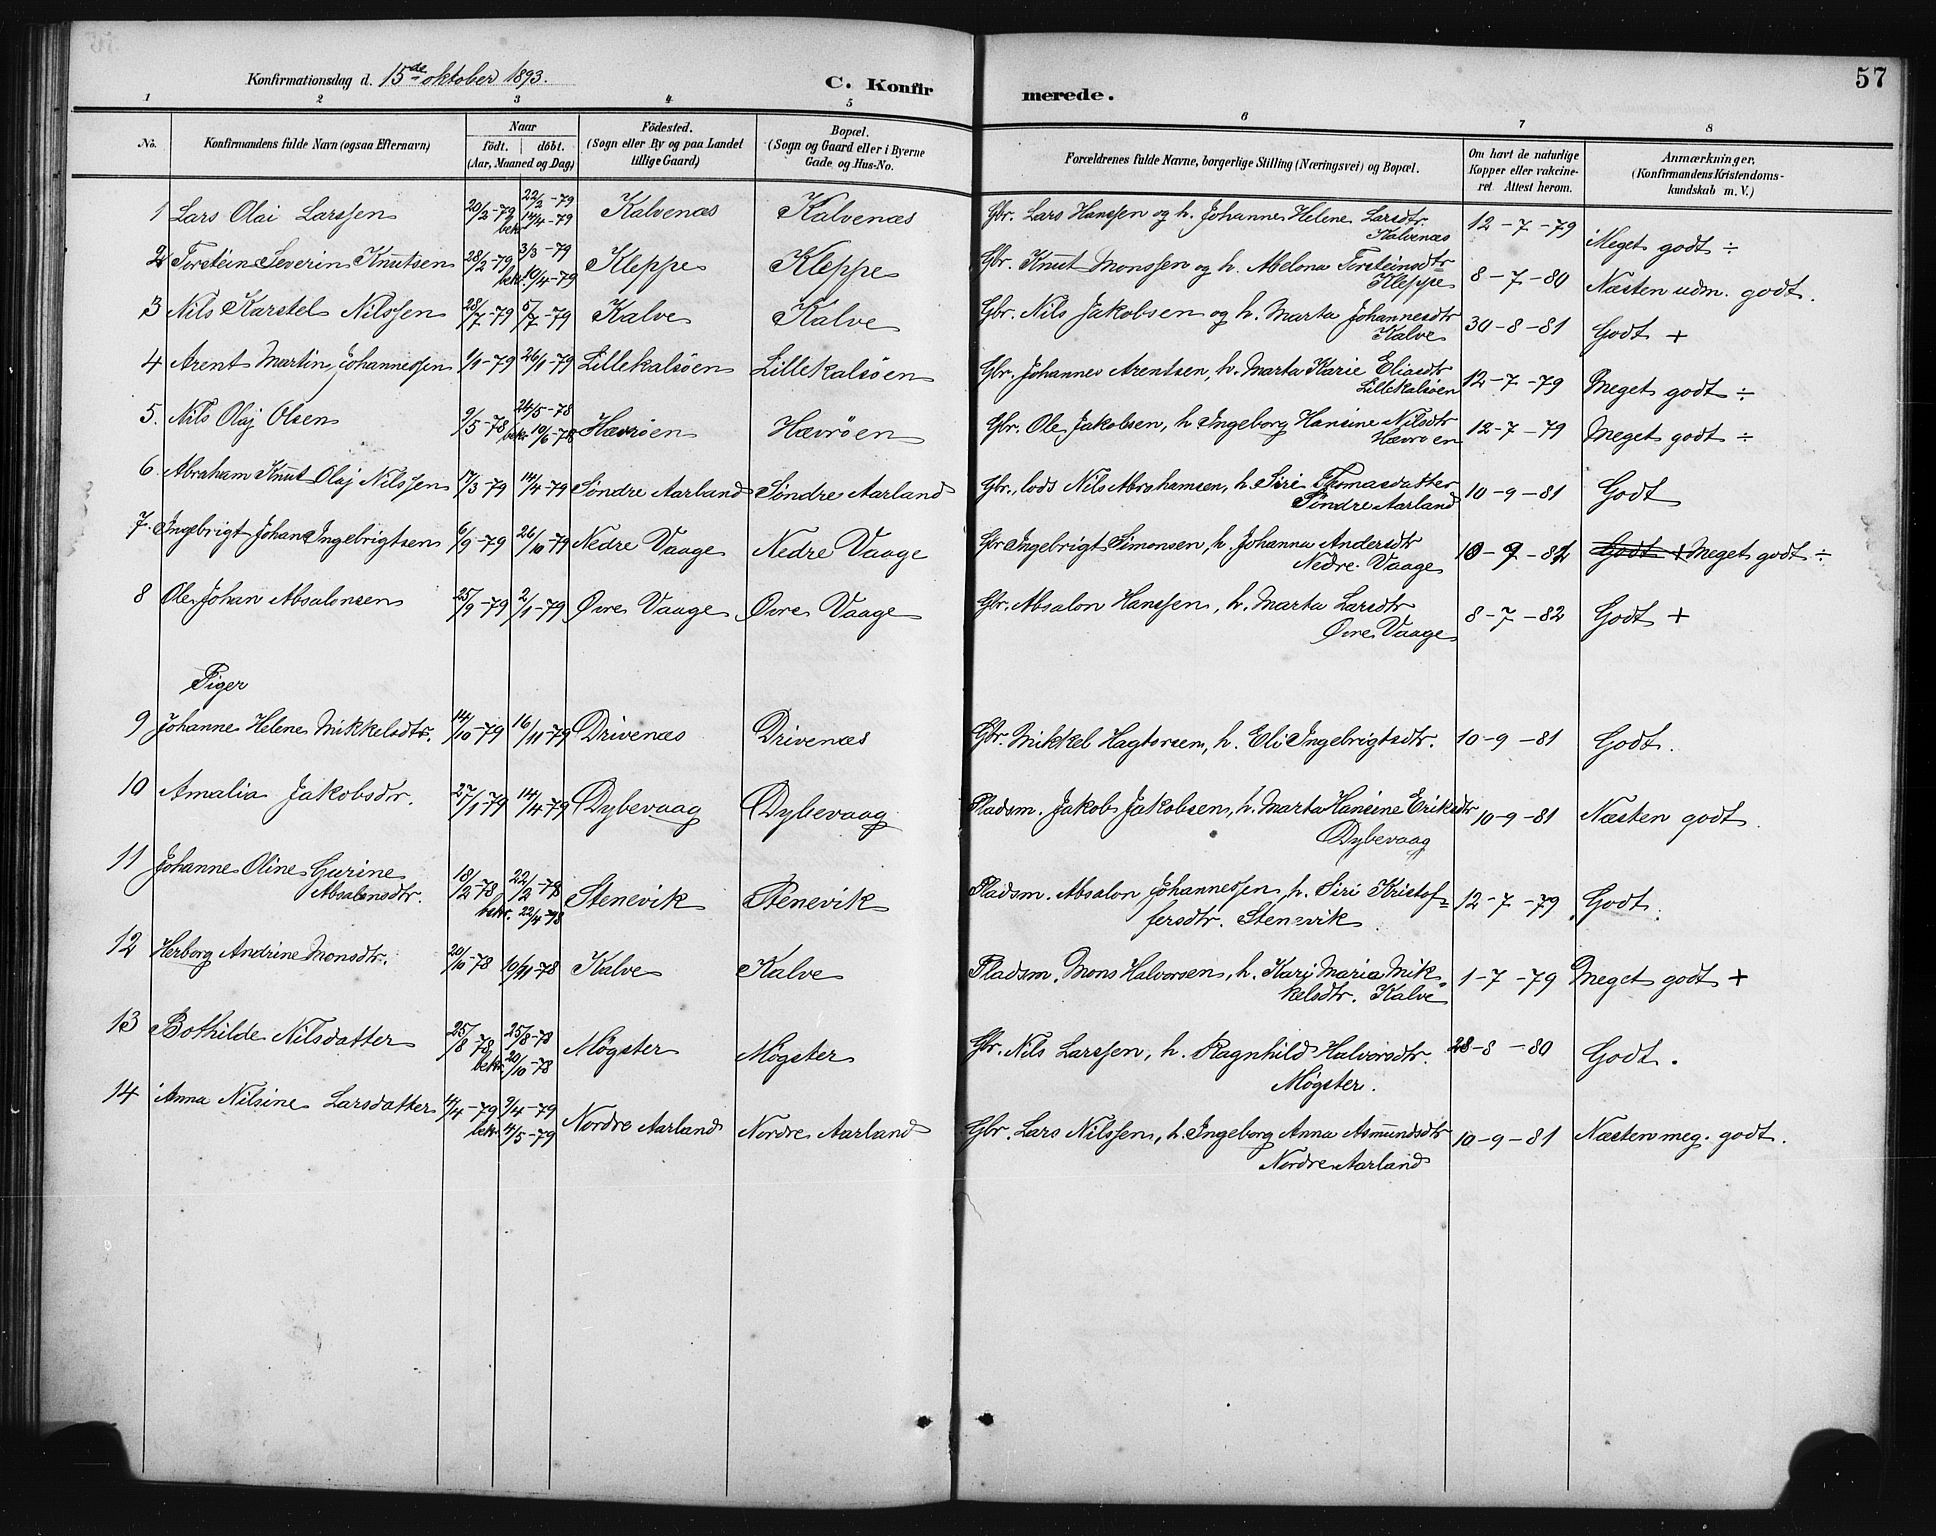 Konfirmationsdag d. 15de oktober 1893.
C. Konfirmerede.
57
1 2 3 4 5 6 7 8
No.
Konfirmandens fulde Navn (ogsaa Efternavn)
Naar
født. døbt.
(Aar, Maaned og Dag)
Fødested.
(Sogn eller By og paa Landet
tillige Gaard)
Bopæl.
(Sogn og Gaard eller i Byerne
Gade og Hus-No.
Forældrenes fulde Navne, borgerlige Stilling (Næringsvei) og Bopæl.
Om havt de naturlige
Kopper eller vakcine-
ret. Attest herom.
Anmærkninger,
(Konfirmandens Kristendoms-
kundskab m. V.)
1 Lars Olai Larssen 20/2-79 22/2-79 bekr. 14/4-79 Kalvenæs Kalvenæs Gbr. Lars Hanssen og h. Johanne Helene Larsdtr. 12-7-79 Meget godt ÷
Kalvenæs
2 Torstein Severin Knutsen 28/2-79 3/3-79 bekr. 10/4-79 Kleppe Kleppe Gbr. Knut Monssen og h. Abelona Torsteinsdtr 8-7-80 Næsten udm. godt.
Kleppe
3 Nils Karstel Nilssen 28/7-79 5/7-79 Kalve Kalve Gbr. Nils Jakobsen og h. Marta Johannesdtr 30-8-81 Godt +
Kalve
4 Arent Martin Johannessen 1/1-79 26/1-79 Lillekalsöen Lillekalsöen Gbr. Johannes Arentsen, h. Marta Karie Eliasdtr 12-7-79 Meget godt ÷
Lillekalsöen
5. Nils Olaj Olsen 9/5-78 24/5-78 bekr. 10/6-78 Hævröen Hævröen Gbr. Ole Jakobsen, h. Ingeborg Hansine Nilsdtr 12-7-79 Meget godt ÷
Hævröen
6 Abraham Knut Olaj Nilssen 17/3-79 14/4-79 Söndre Aarland Söndre Aarland Gbr., lods Nils Abrahamsen, h. Siri Thomasdatter 10-9-81 Godt
Söndre Aarland
7. Ingebrigt Johan Ingebrigtsen 6/9-79 26/10-79 Nedre Vaage Nedre Vaage Gbr Ingebrigt Simonsen, h. Johanna Andersdtr 10-9-82 Godt + Meget godt ÷
Nedre Vaage
8 Ole Johan Absalonsen 25/9-79 2/11-79 Øvre Vaage Øvre Vaage Gbr. Absalon Hanssen, h. Marta Larsdtr 8-7-82 Godt +
Øvre Vaage
Piger
9 Johanne Helene Mikkelsdtr. 14/10-79 16/11-79 Drivenæs Drivenæs Gbr. Mikkel Hagtorsen, h. Eli Ingebrigtsdtr. 10-9-81 Godt.
10 Amalia Jakobsdr. 27/1-79 14/4-79 Dybevaag Dybevaag Pladsm. Jakob Jakobsen, h. Marta Hansine Eriksdtr 10-9-81 Næsten godt
Dybevaag
11 Johanne Oline Gurine
Absalonsdtr. 18/2-78 22/2-78 bekr. 22/4-78 Stenevik Stenevik Pladsm. Absalon Johannessen, h. Siri Kristof- 12-7-79 Godt.
fersdtr. Stenevik
12 Herborg Andrine Monsdtr. 20/10-78 10/11-78 Kalve Kalve Pladsm. Mons Halvorsen, h. Kari Maria Mik- 1-7-79 Meget godt +
kelsdtr. Kalve
13 Bothilde Nilsdatter 25/8-78 25/8-78 bekr. 20/10-78 Møgster Møgster Gbr. Nils Larssen, h. Ragnhild Halvorsdtr. 28-8-80 Godt.
Møgster.
14 Anna Nilsine Larsdatter 4/4-79 9/4-79 bekr. 4/5-79 Nordre Aarland Nordre Aarland Gbr. Lars Nilssen, h. Ingeborg Anna Asmundsdtr 10-9-81 Næsten meg. godt.
Nordre Aarland